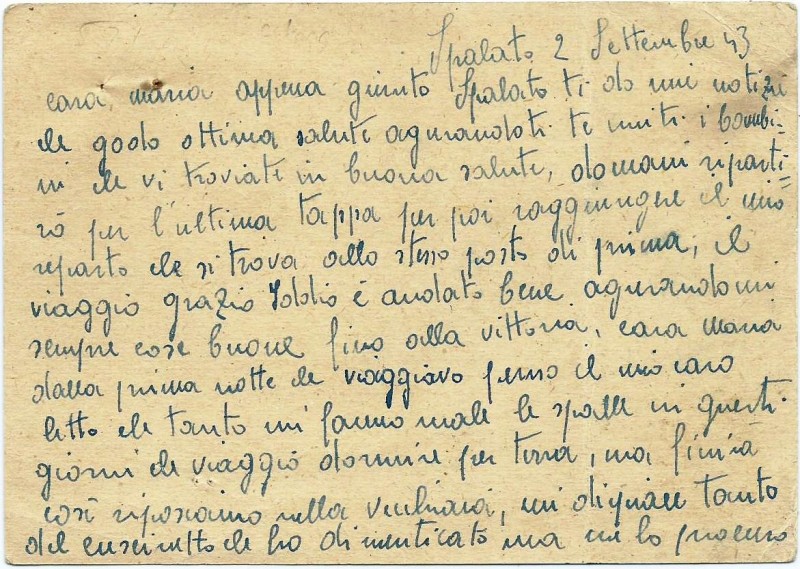 Spalato 2 Settembre 43
cara, maria appena giunto Spalato ti do mie notizi
che godo ottima salute agurandoti te uniti i bambi-
ni che vi troviate in buona salute, domani riparti=
rò per l'ultima tappa per poi raggiungere il mio
reparto che si trova allo stesso posto di prima, il
viaggio grazio Iddio é andato bene agurandomi
sempre cose buone fino alla vittoria, cara maria
dalla prima notte che viaggiavo penso il mio caro
letto che tanto mi fanno male le spalle in questi
giorni che viaggio dormire per terra, ma finirà
così riposiamo nella vecchiaia, mi dispiace tanto
del cuscinetto che ho dimenticato ma me lo procuro